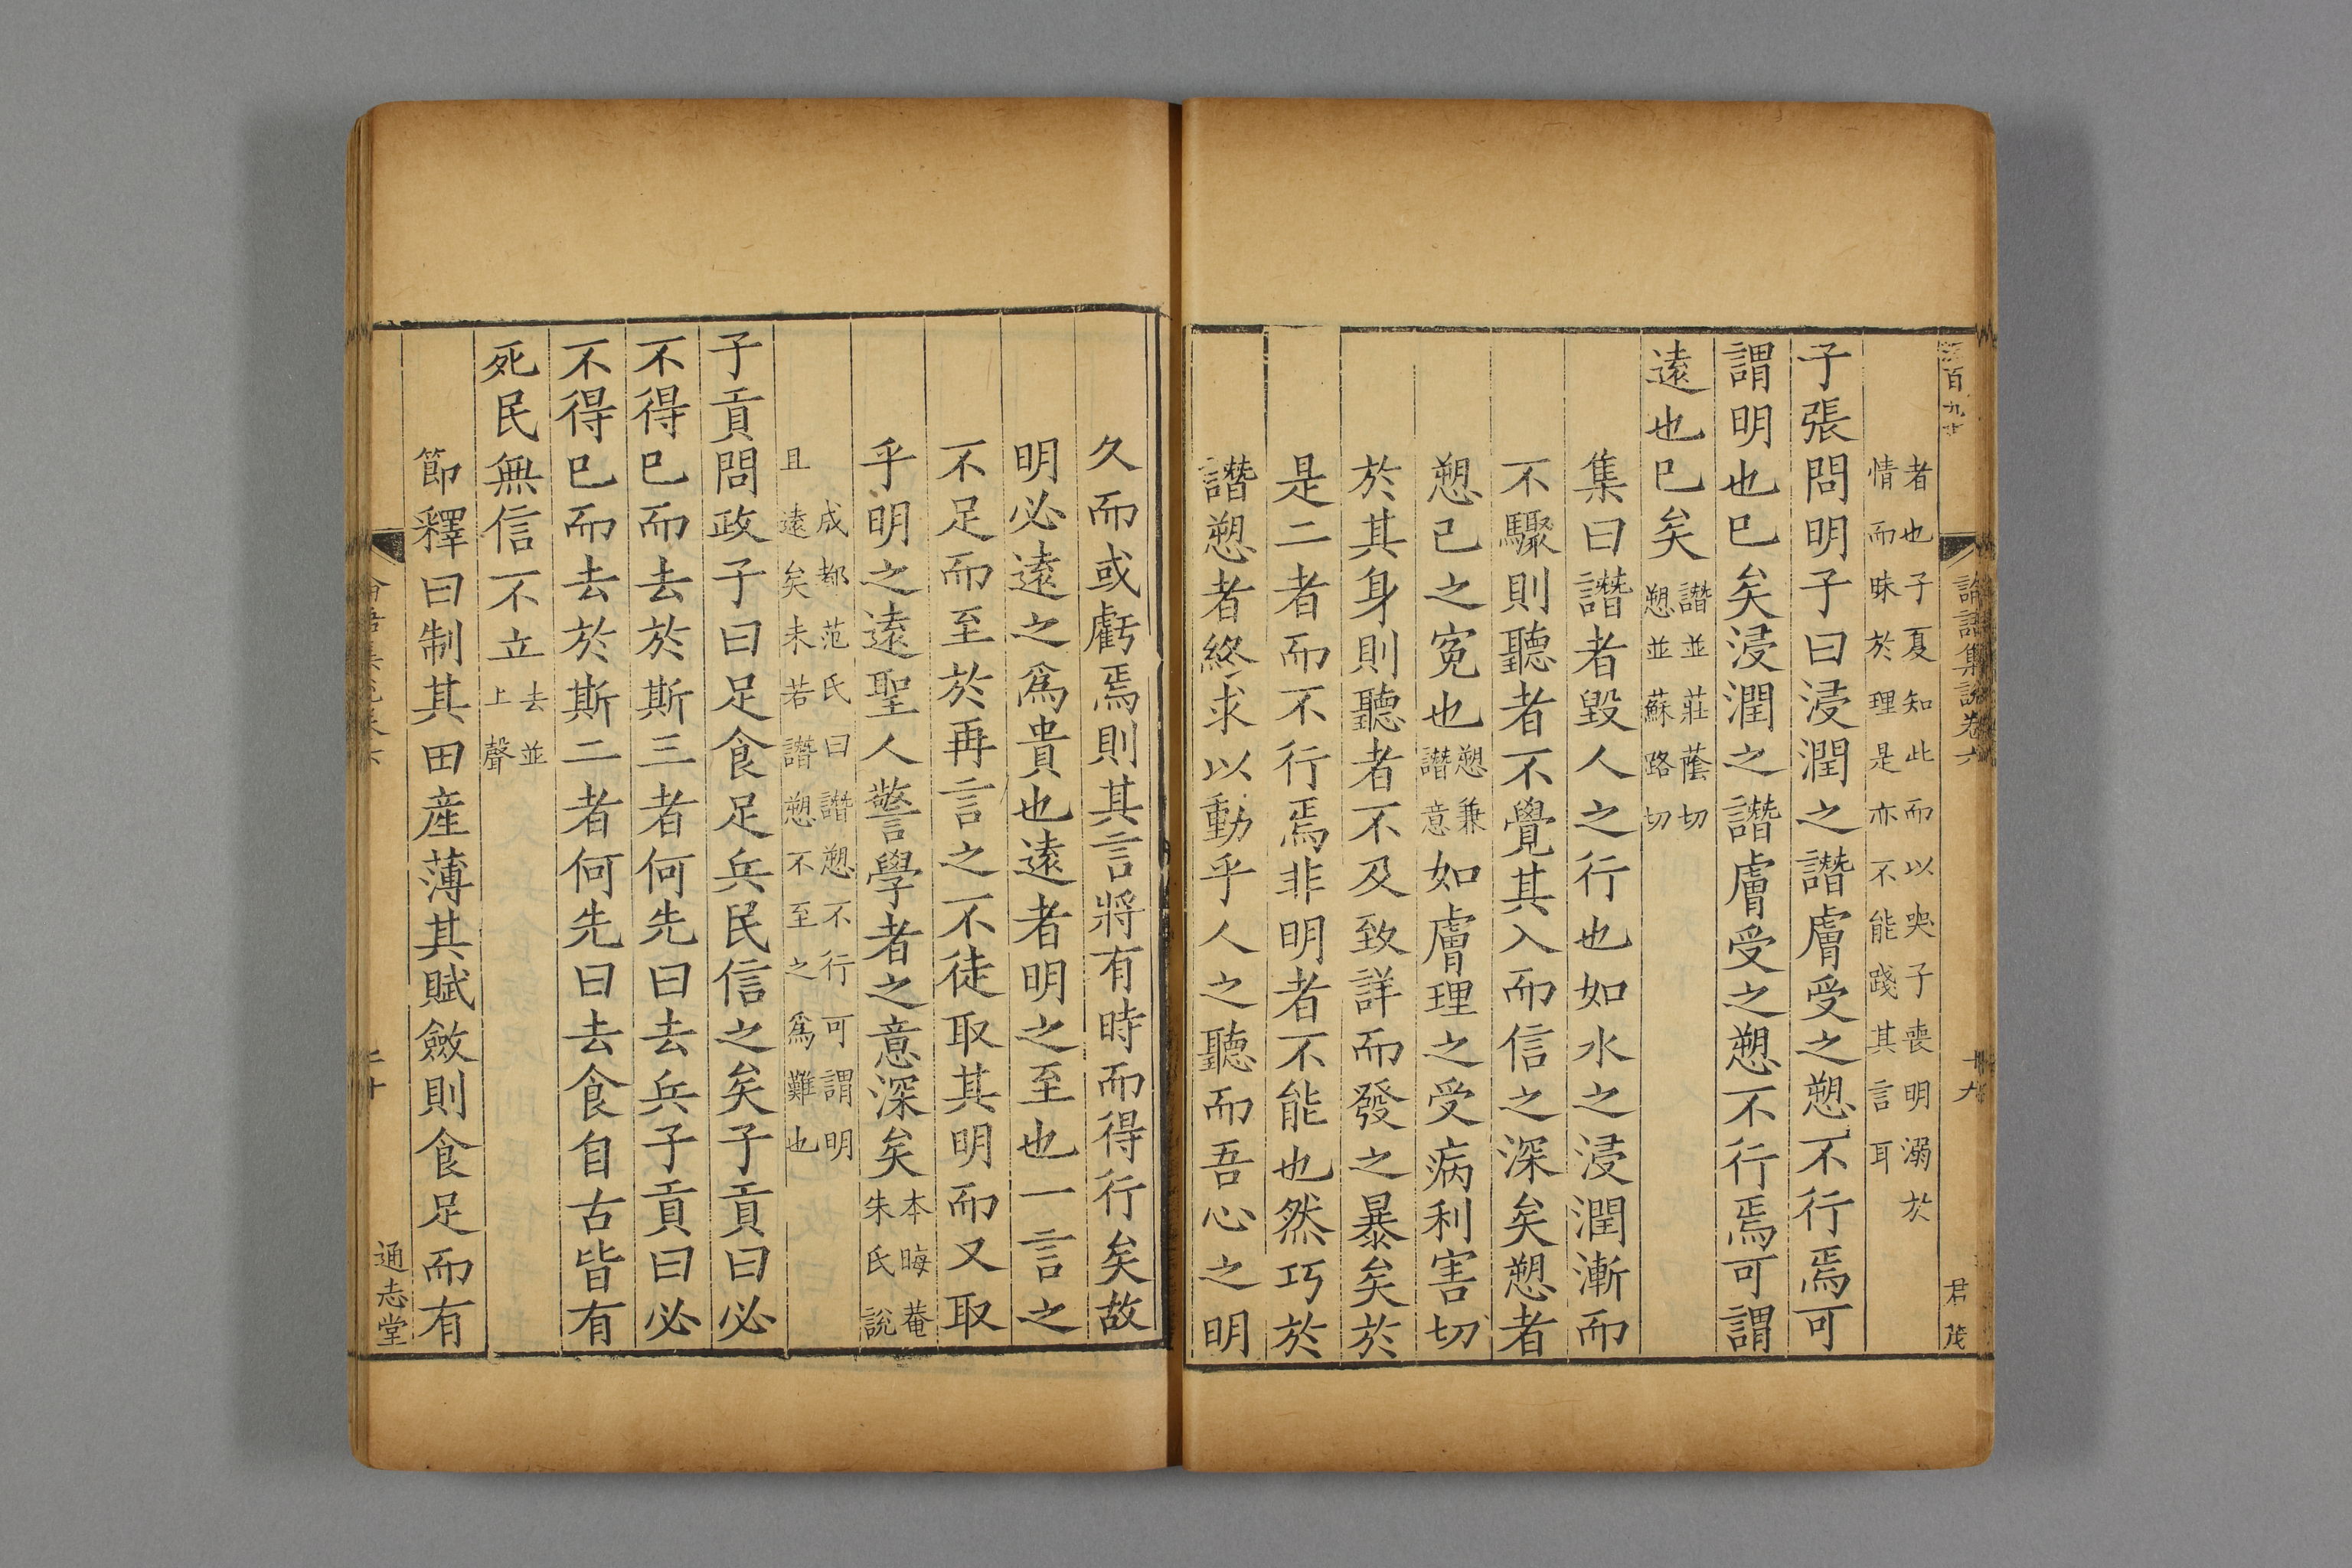 論語集說卷六
君茂
者也子夏知此而以哭子喪明溺於
情而昧於理是亦不能踐其言耳
子張問明子曰浸潤之譖膚受之愬不行焉可
謂明也已矣浸潤之譖膚受之愬不行焉可謂
遠也已矣譖並莊蔭切愬並蘇路切
集曰譖者毀人之行也如水之浸潤漸而
不驟則聽者不覺其入而信之深矣愬者
愬己之寃也愬兼譖意如膚理之受病利害切
於其身則聽者不及致詳而發之暴矣於
是二者而不行焉非明者不能也然巧於
譖愬者終求以動乎人之聽而吾心之明
久而或虧焉則其言將有時而得行矣故
明必遠之爲貴也遠者明之至也一言之
不足而至於再言之不徒取其明而又取
乎明之遠聖人警學者之意深矣本晦菴朱氏說
成都范氏曰譖愬不行可謂明
且遠矣未若譖愬不至之爲難也
子貢問政子曰足食足兵民信之矣子貢曰必
不得已而去於斯三者何先曰去兵子貢曰必
不得已而去於斯二者何先曰去食自古皆有
死民無信不立去並上聲
節釋曰制其田産薄其賦斂則食足而有
二十
通志堂